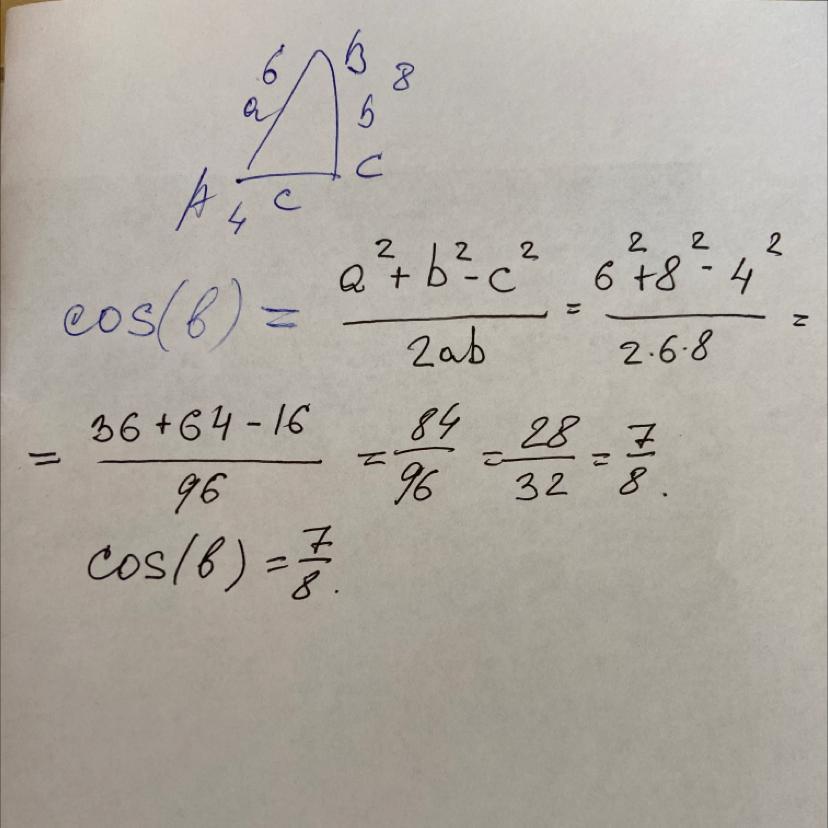 6 B 8
a b
A 4 c C
cos(в) = (a² + b² - c²) / (2ab) = (6² + 8² - 4²) / (2·6·8) =
= (36 + 64 - 16) / 96 = 84/96 = 28/32 = 7/8.
cos(в) = 7/8.